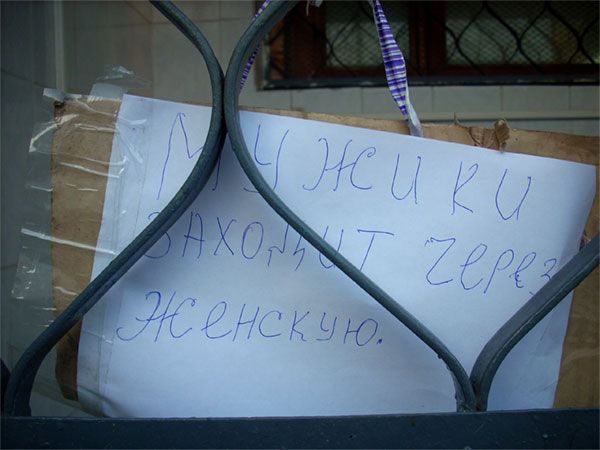 МУЖИКИ
ЗАХОДИТ ЧЕРЕЗ
ЖЕНСКУЮ.